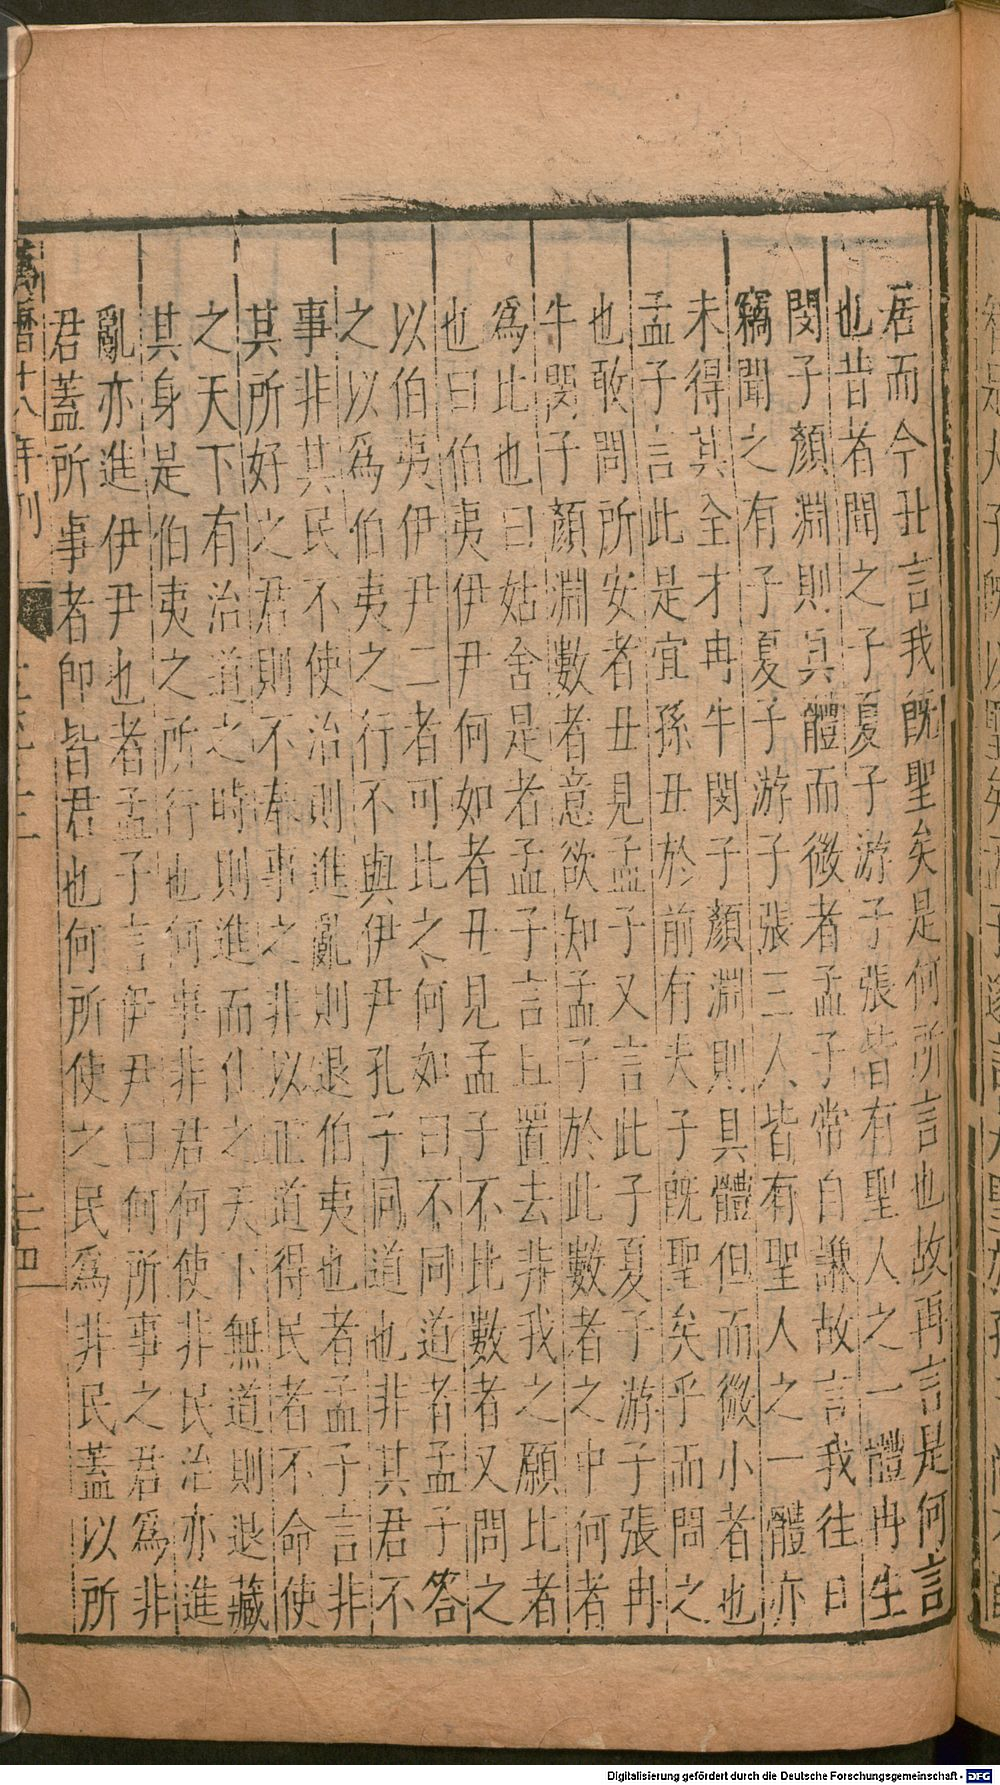 居而今丑言我旣聖矣是何所言也故再言是何言
也昔者聞之子夏子游子張皆有聖人之一體冉牛
閔子顏淵則具體而微者孟子常自謙故言我往日
竊聞之有子夏子游子張三人皆有聖人之一體亦
未得其全才冉牛閔子顏淵則具體但而微小者也
孟子言此是宜孫丑於前有夫子旣聖矣乎而問之
也敢問所安者丑見孟子又言此子夏子游子張冉
牛閔子顏淵數者意欲知孟子於此數者之中何者
爲比也曰姑舍是者孟子言且置去非我之願比者
也曰伯夷伊尹何如者丑見孟子不比數者又問之
以伯夷伊尹二者可比之何如曰不同道者孟子答
之以爲伯夷之行不與伊尹孔子同道也非其君不
事非其民不使治則進亂則退伯夷也者孟子言非
其所好之君則不奉事之非以正道得民者不命使
之天下有治道之時則進而仕之天下無道則退藏
其身是伯夷之所行也何事非君何使非民治亦進
亂亦進伊尹也者孟子言伊尹曰何所事之君爲非
君蓋所事者卽皆君也何所使之民爲非民蓋以所
萬曆十八年刊
二十四
Digitalisierung gefördert durch die Deutsche Forschungsgemeinschaft - DFG